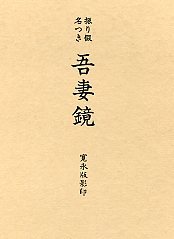 振り仮
名つき
吾妻鏡
寛永版影印